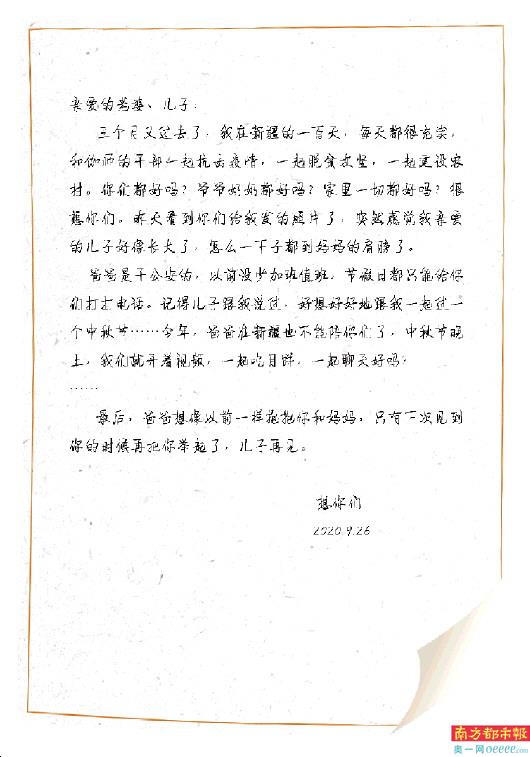 亲爱的老婆、儿子：
三个月又过去了，我在新疆的一百天，每天都很充实，
和伽师的干部一起抗击疫情，一起脱贫攻坚，一起建设农
村。你们都好吗？爷爷奶奶都好吗？家里一切都好吗？很
想你们。昨天看到你们给我发的照片了，突然感觉我亲爱
的儿子好像长大了，怎么一下子都到妈妈的肩膀了。
爸爸是干公安的，以前没少加班值班，节假日都只能给你
们打打电话。记得儿子跟我说过，好想好好地跟我一起过一
个中秋节……今年，爸爸在新疆也不能陪你们了，中秋节晚
上，我们就开着视频，一起吃月饼，一起聊天好吗？
……
最后，爸爸想像以前一样抱抱你和妈妈，只有下次见到
你的时候再把你举起了，儿子再见。
想你们
2020.9.26
南方都市報
奥一网oeeee.com